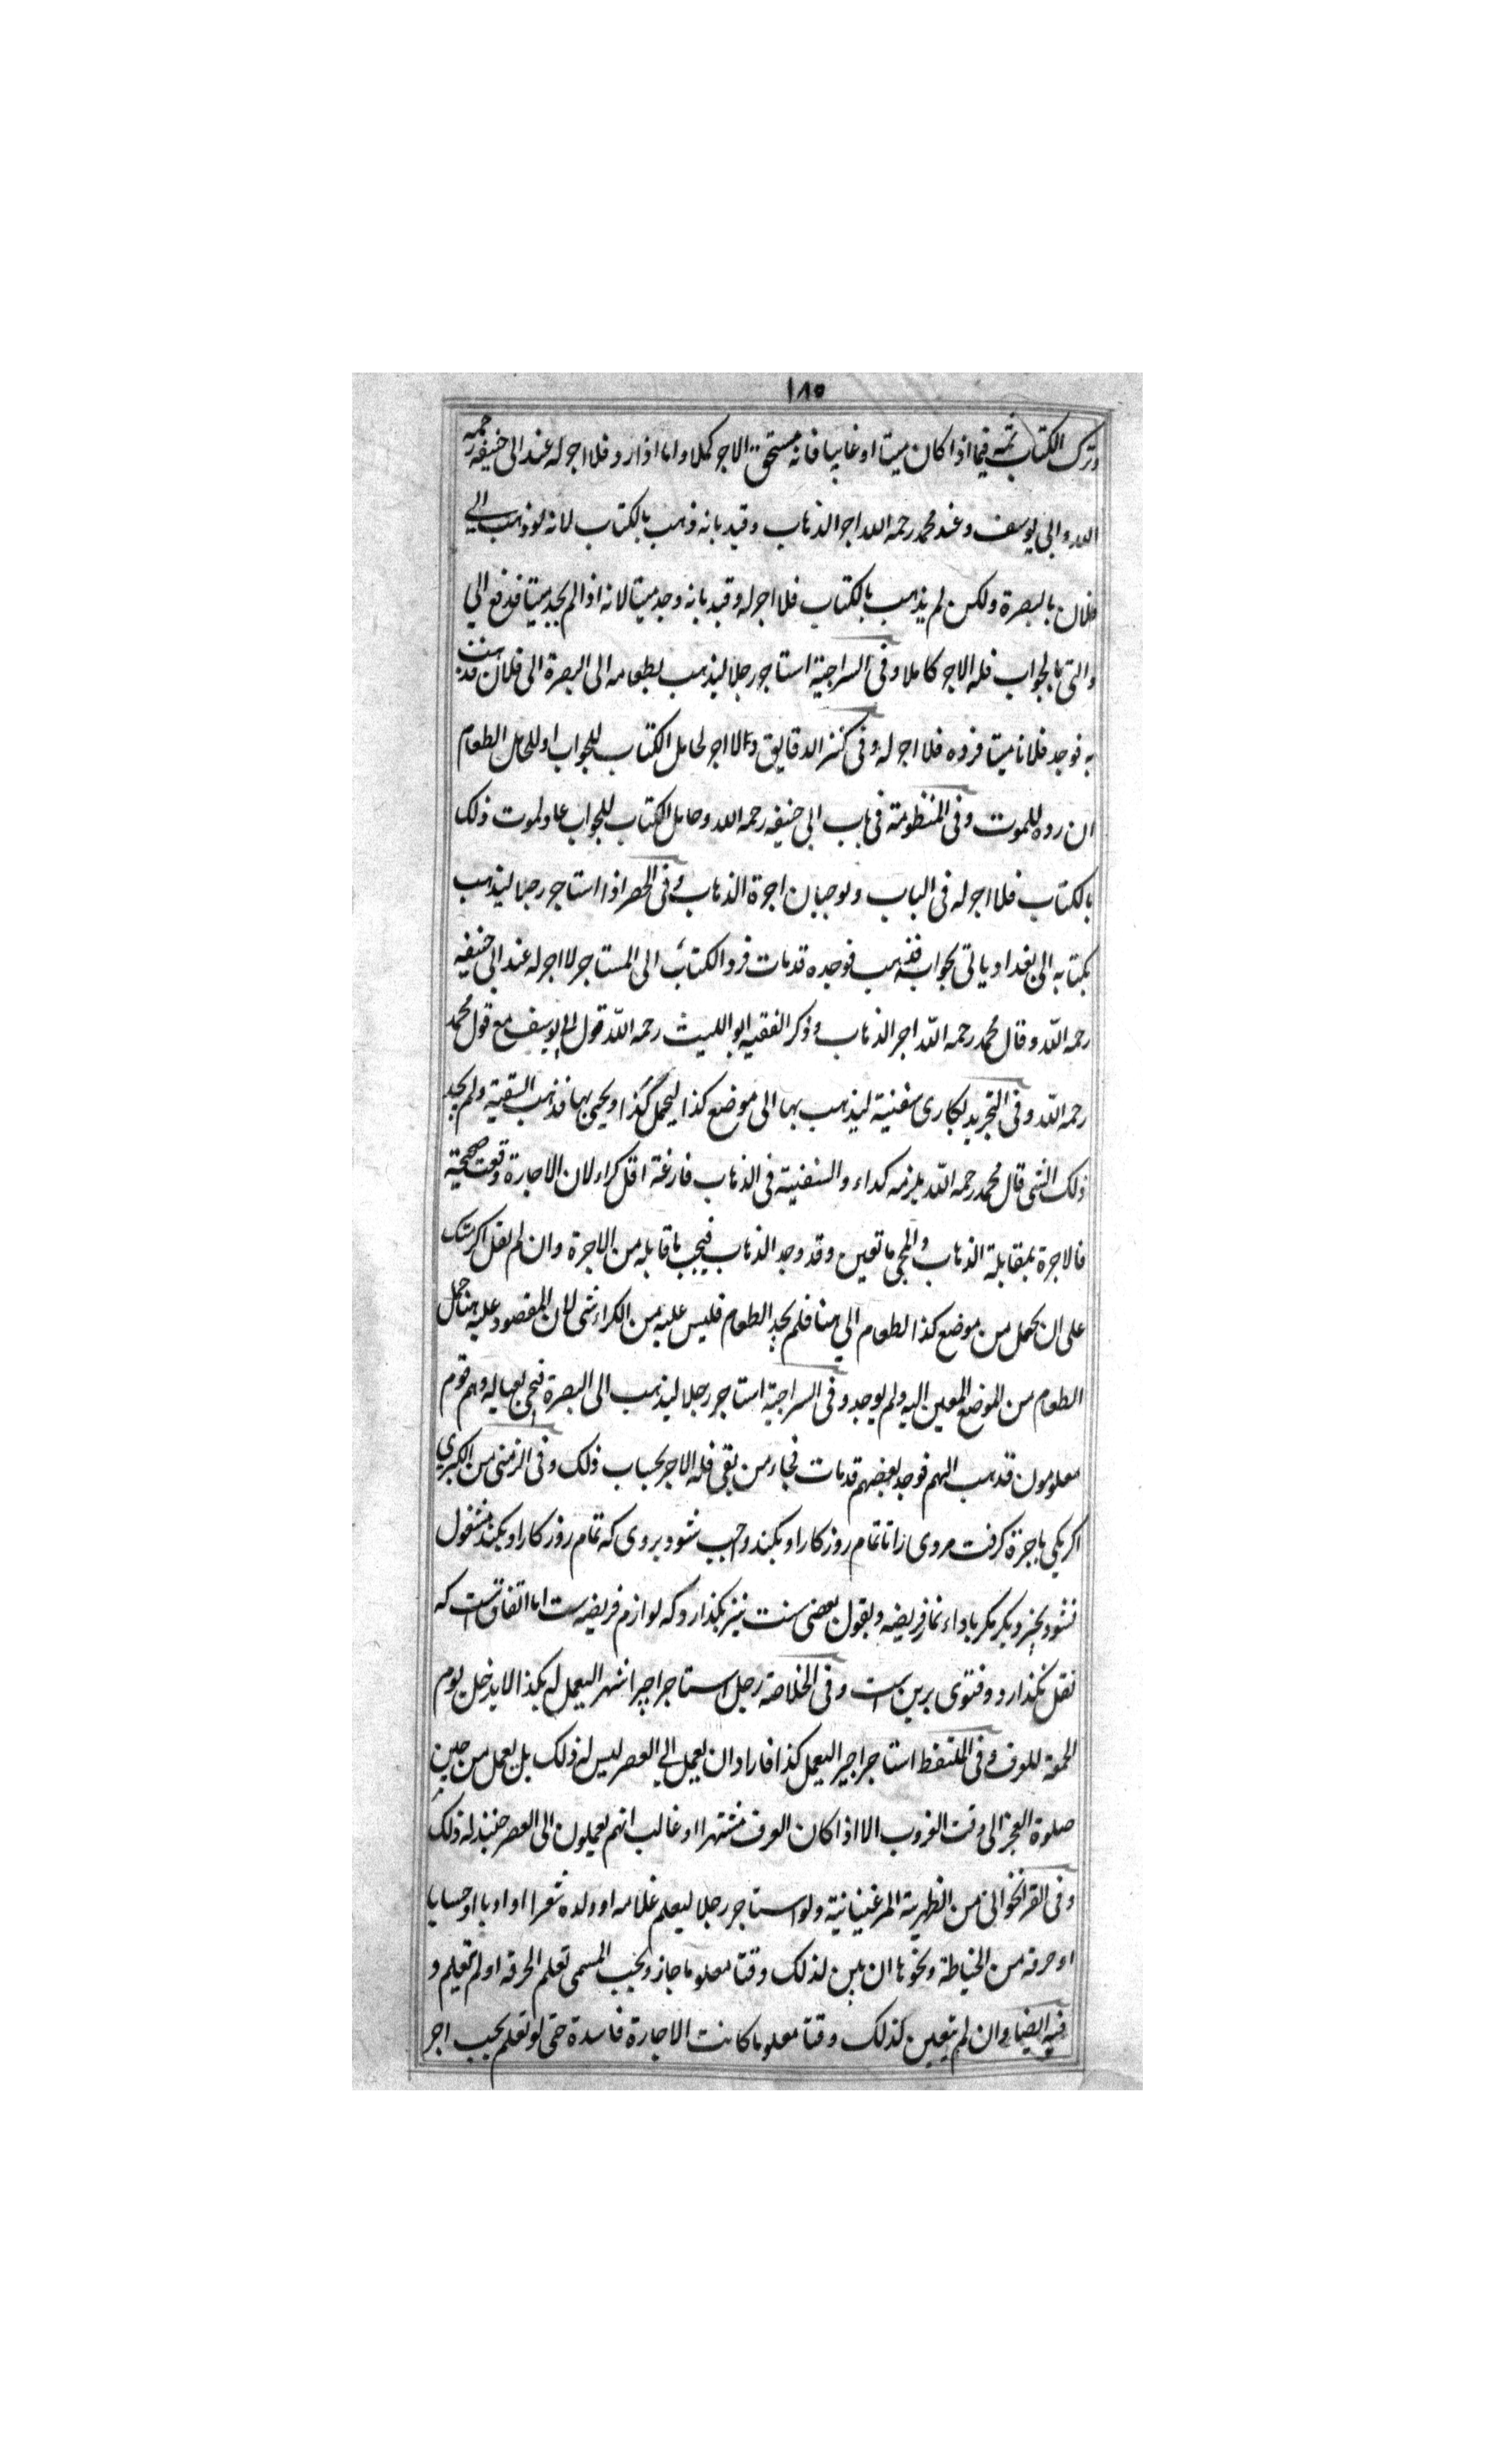 ١٨٥
وترك الكتاب ثمه فيما اذا كان ميتا او غايبا فانه مستحق الاجر كملا واما اذا رد فلا اجر له عند ابى حنيفه رحمه
الله وابى يوسف وعند محمد رحمه الله اجر الذهاب وقيد بانه ذهب بالكتاب لانه لو ذهب الى
فلان بالبصرة ولكن لم يذهب بالكتاب فلا اجر له وقيد بانه وجد ميتا لانه اذا لم يجد ميتا فدفع الى
واتى بالجواب فله الاجر كاملا وفى السراجية استاجر رجلا ليذهب بطعامه الى البصرة الى فلان فذهب
به فوجد فلانا ميتا فرده فلا اجر له وفى كنز الدقايق ولا اجر لحامل الكتاب للجواب او لحامل الطعام
ان رده للموت وفى المنظومة فى باب ابى حنيفه رحمه الله وحامل الكتاب للجواب عاد لموت ذلك
بالكتاب فلا اجر له فى الباب ويوجبان اجرة الذهاب وفى الحصر اذا استاجر رجلا ليذهب
بكتابه الى بغداد وياتى بجواب فذهب فوجده قد مات فرد الكتاب الى المستاجر لا اجر له عند ابى حنيفه
رحمه الله وقال محمد رحمه الله اجر الذهاب وذكر الفقيه ابو الليث رحمه الله قول ابى يوسف مع قول محمد
رحمه الله وفى التجريد لكارى سفينة ليذهب بها الى موضع كذا ليحمل كذا ويجئ بها فذهب السفينة ولم يجد
ذلك الشى قال محمد رحمه الله يلزمه كراء والسفينة فى الذهاب فارغة اقل كراء لان الاجارة وقعت صحيحة
فالاجرة بمقابلة الذهاب والمجى ما تعين وقد وجد الذهاب فيجب ما قابله من الاجرة وان لم يقل اكريتك
على ان يحمل من موضع كذا الطعام الى هنا فلم يجد الطعام فليس عليه من الكراء شى لان المقصود عليه هنا حمل
الطعام من الموضع المعين اليه ولم يوجد وفى السراجية استاجر رجلا ليذهب الى البصرة فيجى بعياله وهم قوم
معلومون فذهب اليهم فوجد بعضهم قد مات فجاء من بقى فله الاجر بحساب ذلك وفى الزمنى من الكبرى
اكر يكى باجرة كرفت مردى را تا تمام روز كار او بكند واجب شود بروى كه تمام روز كار او بكند مشغول
نشود بچيز ديكر مكر باداء نماز فريضه وبقول بعضى سنت نيز بكذارد كه لوازم فريضه ست اما اتفاق ست كه
نفل نكذارد وفتوى برين است وفى الخلاصة رجل استاجر اجيرا شهرا ليعمل له بكذا لا يدخل يوم
الجمعة للعرف وفى الملتقط استاجر اجيرا ليعمل كذا فاراد ان يعمل الى العصر ليس له ذلك بل يعمل من حين
صلوة الفجر الى وقت الغروب الا اذا كان العرف مشتهرا او غالب انهم يعملون الى العصر حينئذ له ذلك
وفى القراخوانى من الظهيرية المرغينانية ولو استاجر رجلا ليعلم غلامه او ولده شعرا او ادبا او حسابا
او حرفه من الخياطة ونحوها ان بين لذلك وقتا معلوما جاز ويجب المسمى تعلم الحرفه او لم يتعلم و
فيه ايضا وان لم يتعين كذلك وقتا معلوما كانت الاجارة فاسدة حتى لو تعلم يجب اجر